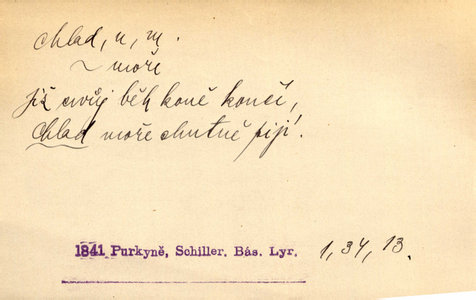 chlad, u, m.
~ moře
Již svůj běh koně končí,
chlad moře chutně pijí.
1841 Purkyně, Schiller. Bás. Lyr. 1, 34, 13.